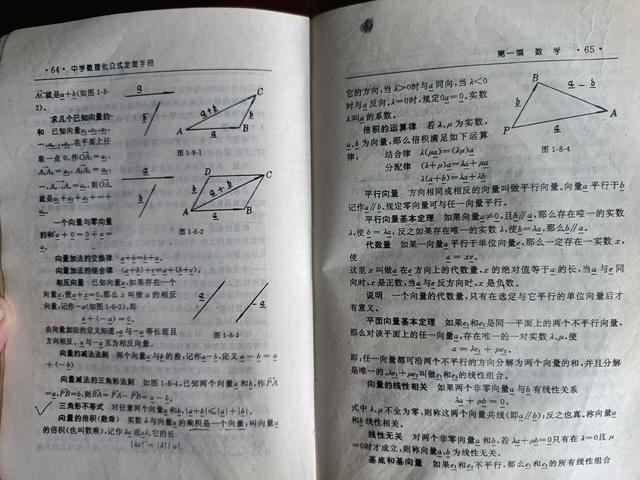 ·64· 中学数理化公式定理手册
AC就是a+b(如图1-8-
2)。
求几个已知向量的
和 已知向量a₁,a₂,a₃,
…,aₙ₋₁,aₙ,在平面上任
取一点O,作OA₁=a₁,
A₁A₂=a₂,A₂A₃=a₃,
…,Aₙ₋₁Aₙ=aₙ,则OAₙ
就是a₁+a₂+a₃+…+
aₙ。
一个向量与零向量
的和 a+0=0+a=
a。
a
b
a+b
A
a
B
b
C
图 1-8-1
a
b
D
C
a+b
A
a
B
图 1-8-2
向量加法的交换律 a+b=b+a。
向量加法的结合律 (a+b)+c=a+(b+c)。
相反向量 已知向量a,如果存在一个
向量x,使a+x=0,那么x叫做a的相反
向量,记作-a(如图1-8-3),即
a+(-a)=0.
由向量加法的定义知道,a与-a等长而且
方向相反,a与-a互为相反向量。
a
-a
图 1-8-3
向量的减法法则 两个向量a与b的差,记作a-b,定义a-b=a
+(-b)
向量减法的三角形法则 如图1-8-4,已知两个向量a和b,作PA
=a,PB=b,则BA=PA-PB=a-b。
三角形不等式 对任意两个向量a和b,|a+b|≤|a|+|b|。
向量的倍积(数乘) 实数λ与向量a的乘积是一个向量,叫向量a
的倍积(也叫数乘),记作λa或aλ,它的长
|λa|=|λ||a|,
第一编 数学 ·65·
它的方向,当λ>0时与a同向,当λ<0
时与a反向,λ=0时,规定0a=0,实数
λ叫a的系数。
倍积的运算律 若λ,μ为实数,
a,b为向量,那么倍积满足如下运算
律:
结合律 λ(μa)=(λμ)a
分配律 (λ+μ)a=λa+μa
λ(a+b)=λa+λb
B
a-b
b
P
a
A
图 1-8-4
平行向量 方向相同或相反的向量叫做平行向量。向量a平行于b
记作a∥b,规定零向量可与任一向量平行。
平行向量基本定理 如果向量a≠0,且b∥a,那么存在唯一的实数
λ,使b=λa,反之如果存在唯一的实数λ,使b=λa,那么b∥a。
代数量 如果一向量a平行于单位向量e,那么一定存在一实数x,
使 a=xe。
这里x叫做a在e方向上的代数量,x的绝对值等于a的长,当a与e同
向时,x是正数;当a与e反方向时,x是负数。
说明 一个向量的代数量,只有在选定与它平行的单位向量后才
有意义。
平面向量基本定理 如果e₁和e₂是同一平面上的两个不平行向量,
那么对该平面上的任一向量a,存在唯一的一对实数λ,μ,使
a=λe₁+μe₂。
即:任一向量都可沿两个不平行的方向分解为两个向量的和,并且分解
是唯一的,λe₁+μe₂叫做e₁和e₂的线性组合。
向量的线性相关 如果两个非零向量a与b有线性关系
λa+μb=0,
式中λ,μ不全为零,则称这两个向量共线(即a∥b);反之也真,称向量a
和b线性相关。
线性无关 对两个非零向量a和b,若λa+μb=0只有在λ=0且μ
=0时才成立,则称向量a,b为线性无关。
基底和基向量 如果e₁和e₂不平行,那么e₁和e₂的所有线性组合